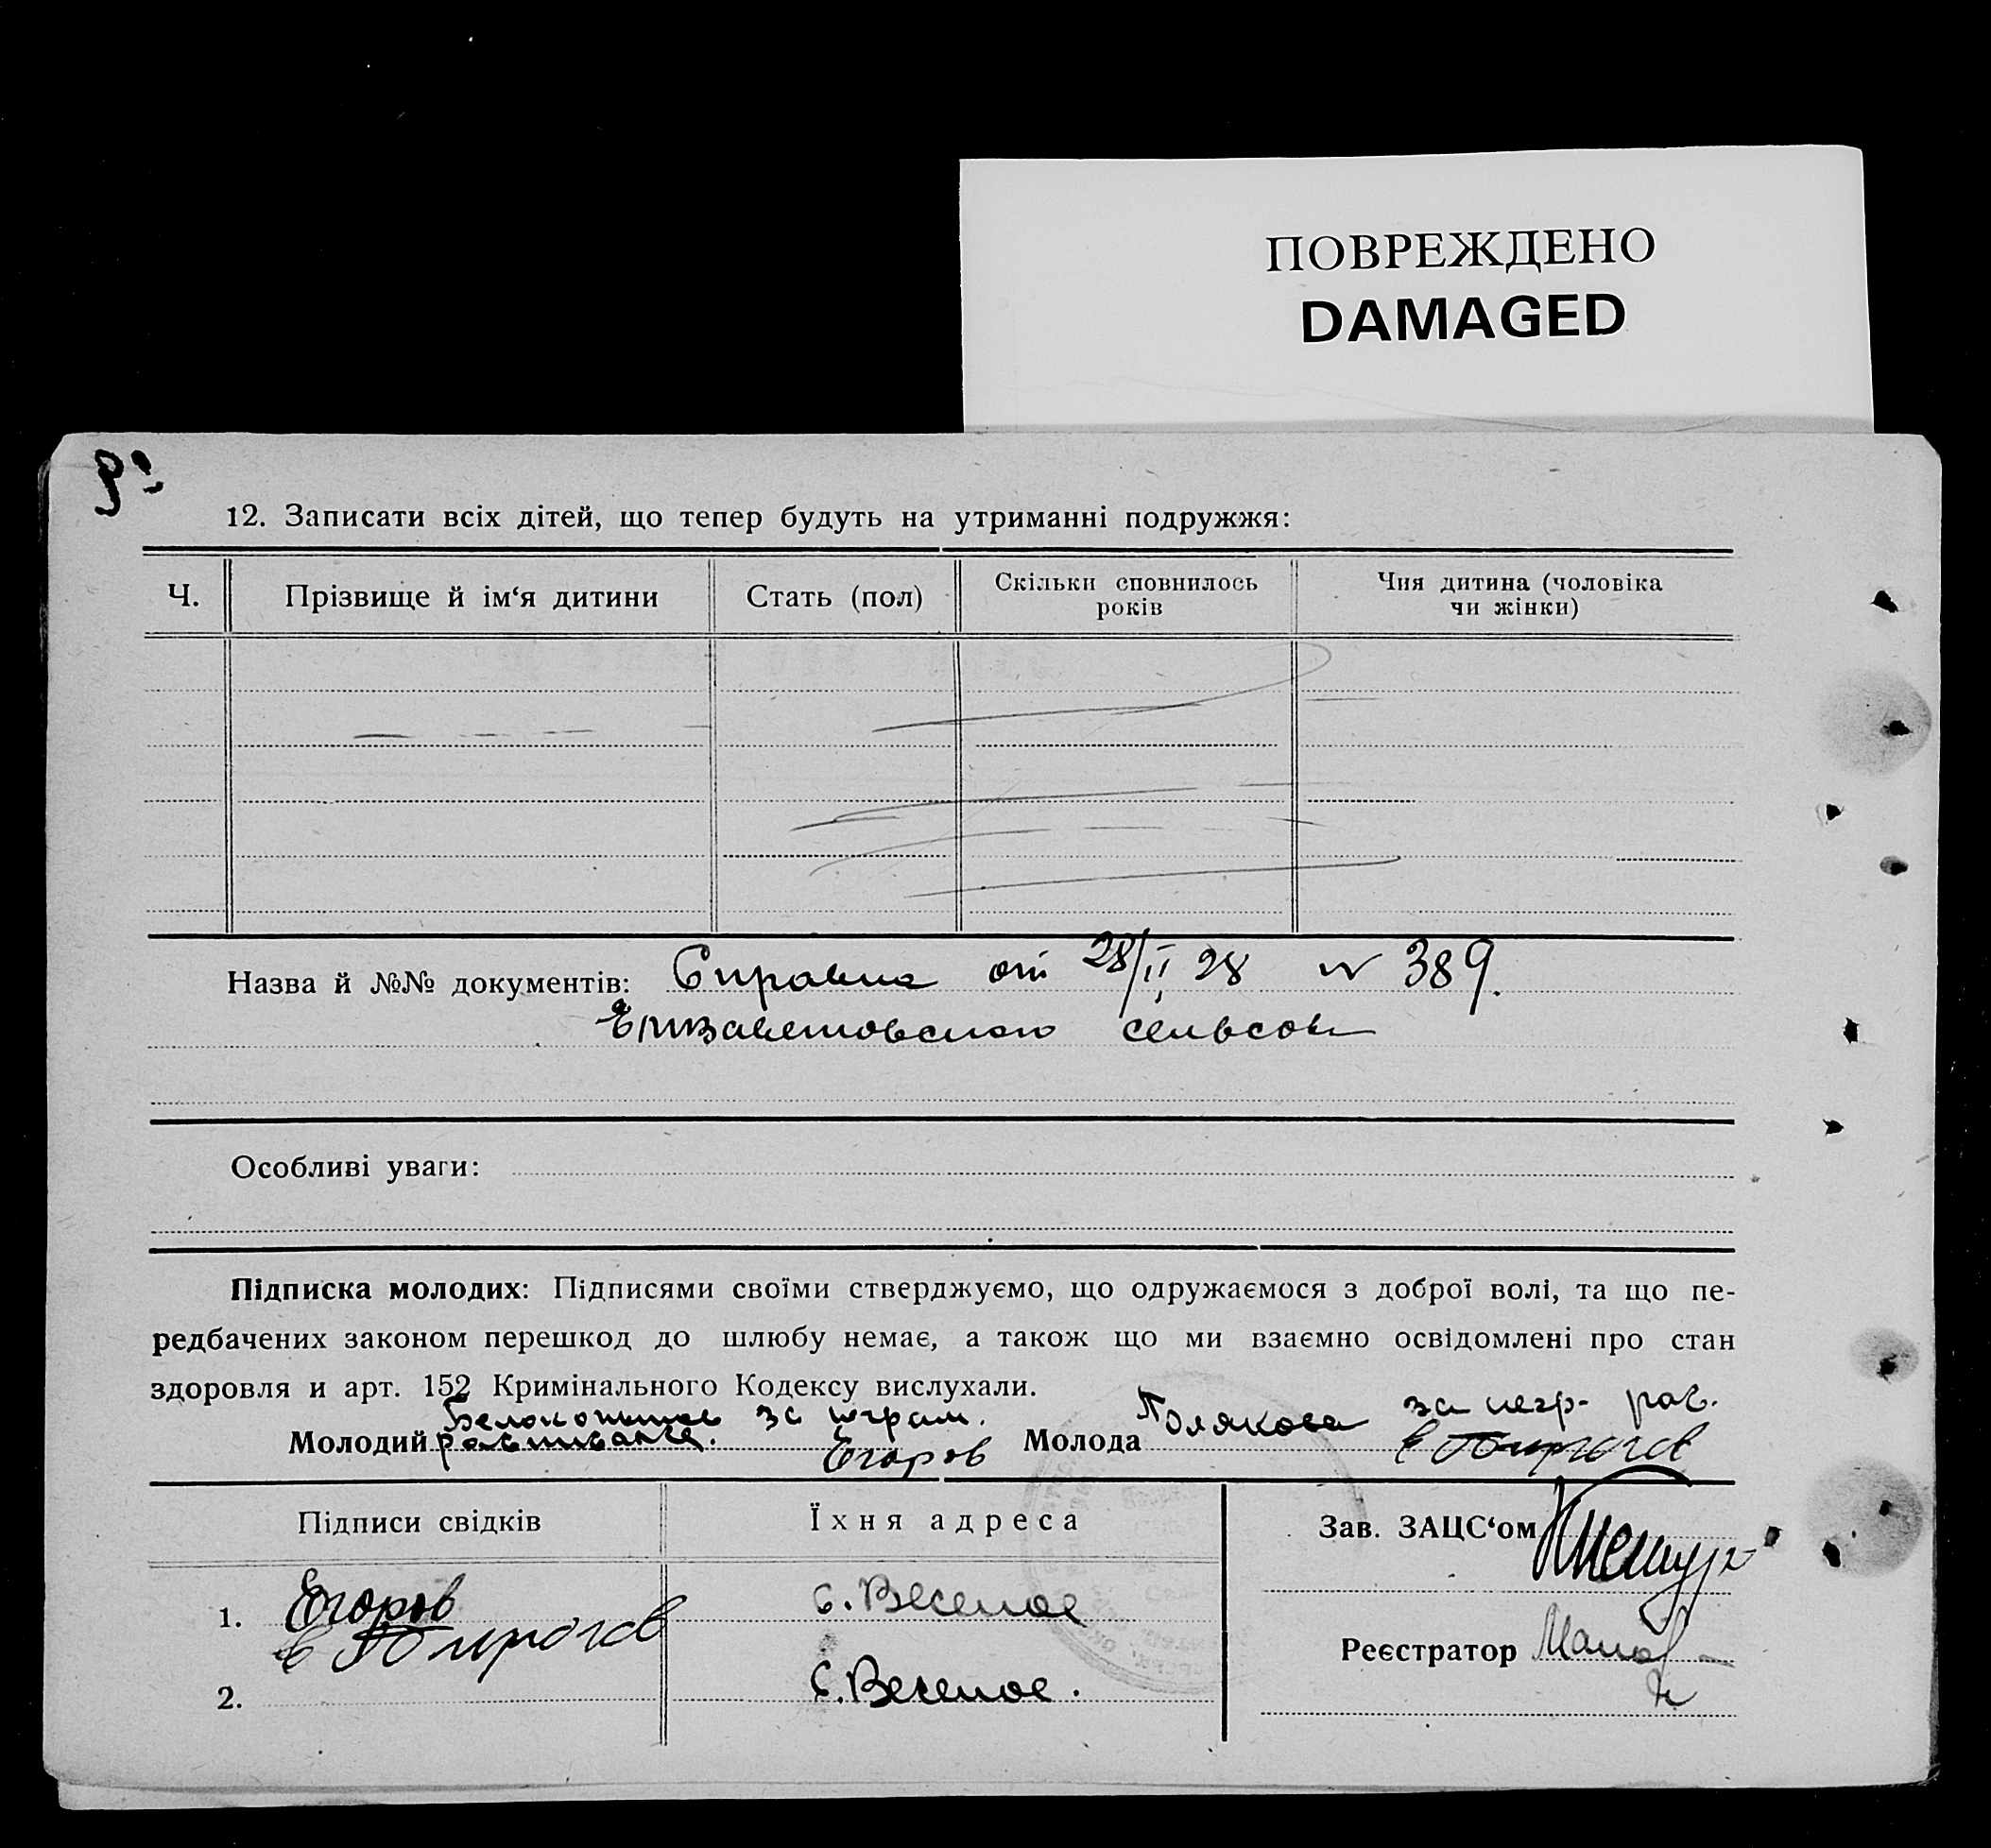 ПОВРЕЖДЕНО
DAMAGED
12. Записати всіх дітей, що тепер будуть на утриманні подружжя:
Ч. Прізвище й ім‘я дитини Стать (пол) Скільки сповнилось років Чия дитина (чоловіка чи жінки)
Назва й №№ документів: Справка от 28/II 28 № 389.
Елизаветовского сельсов
Особливі уваги:
Підписка молодих: Підписями своїми стверджуємо, що одружаємося з доброї волі, та що пе-
редбачених законом перешкод до шлюбу немає, а також що ми взаємно освідомлені про стан
здоровля и арт. 152 Кримінального Кодексу вислухали.
за
Молодий Егоров Молода Полякова за негр. рас.
Підписи свідків Їхня адреса Зав. ЗАЦС‘ом
1. Егоров с. Веселое
Реєстратор
2. с. Веселое.